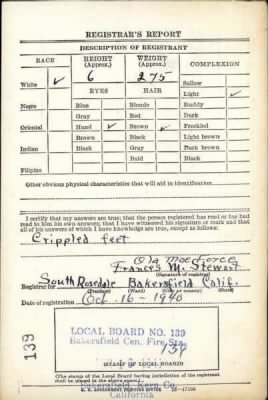 REGISTRAR'S REPORT
DESCRIPTION OF REGISTRANT
RACE HEIGHT (Approx.) WEIGHT (Approx.) COMPLEXION
6 275 Sallow
White ✓ EYES HAIR Light ✓
Negro Blue Blonde Ruddy
Gray Red Dark
Oriental Hazel ✓ Brown ✓ Freckled
Brown Black Light brown
Indian Black Gray Dark brown
Bald Black
Filipino
Other obvious physical characteristics that will aid in identification
I certify that my answers are true; that the person registered has read or has had
read to him his own answers; that I have witnessed his signature or mark and that
all of his answers of which I have knowledge are true, except as follows:
Crippled feet
Frances M. Stewart
(Signature of registrar)
Registrar for South Rosedale Bakersfield Calif.
(Precinct) (Ward) (City or county) (State)
Date of registration Oct. 16 - 1940
139
LOCAL BOARD NO. 139
Bakersfield Cen. Fire Sta.
139
STAMP OF LOCAL BOARD
(The stamp of the Local Board having jurisdiction of the registrant
shall be placed in the above space.)
Bakersfield, Kern Co.
U. S. GOVERNMENT PRINTING OFFICE 16—17106
California